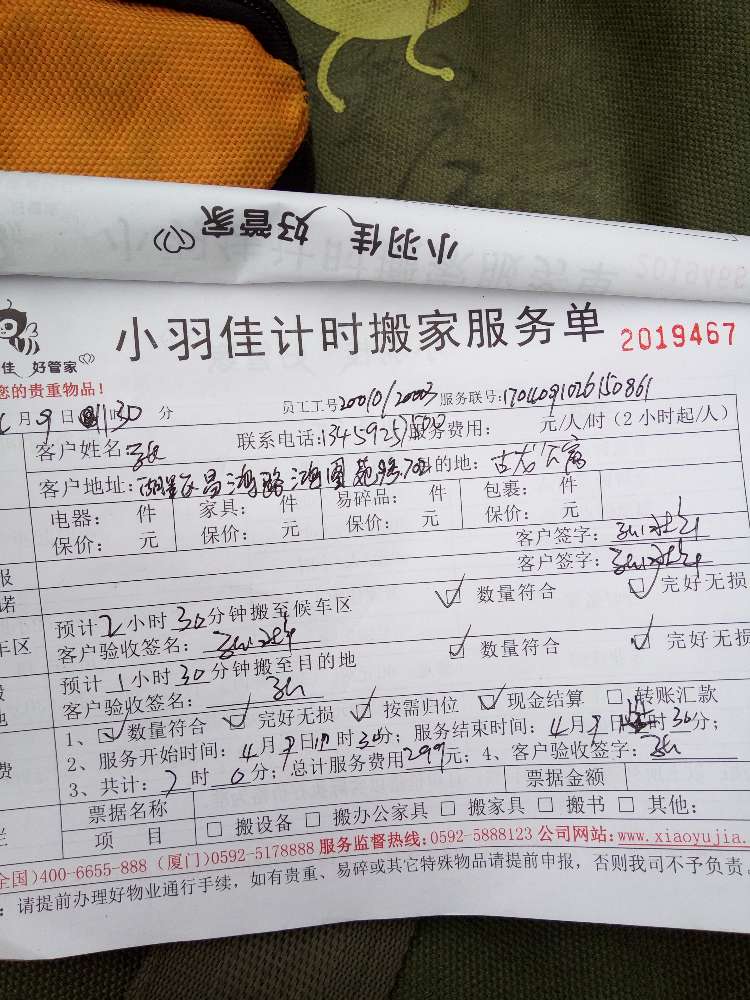 小羽佳 好管家
小羽佳计时搬家服务单 2019467
佳 好管家
您的贵重物品!
月9日 30分 员工工号20010/20003 服务联号:
客户姓名: 联系电话: 服务费用: 元/人/时(2小时起/人)
客户地址: 目的地:古龙公寓
电器: 件 家具: 件 易碎品: 件 包裹: 件
保价: 元 保价: 元 保价: 元 保价: 元
客户签字:
客户签字:
预计2小时30分钟搬至候车区 数量符合 完好无损
车区 客户验收签名:
预计1小时30分钟搬至目的地 数量符合 完好无损
客户验收签名:
1、数量符合 完好无损 按需归位 现金结算 转账汇款
2、服务开始时间:4月9日11时30分; 服务结束时间:4月9日 时30分;
费 3、共计:7时0分; 总计服务费用299元; 4、客户验收签字:
票据名称 票据金额
项目 搬设备 搬办公家具 搬家具 搬书 其他:
全国)400-6655-888 (厦门)0592-5178888 服务监督热线:0592-5888123 公司网站:www.xiaoyujia.
:请提前办理好物业通行手续,如有贵重、易碎或其它特殊物品请提前申报,否则我司不予负责。